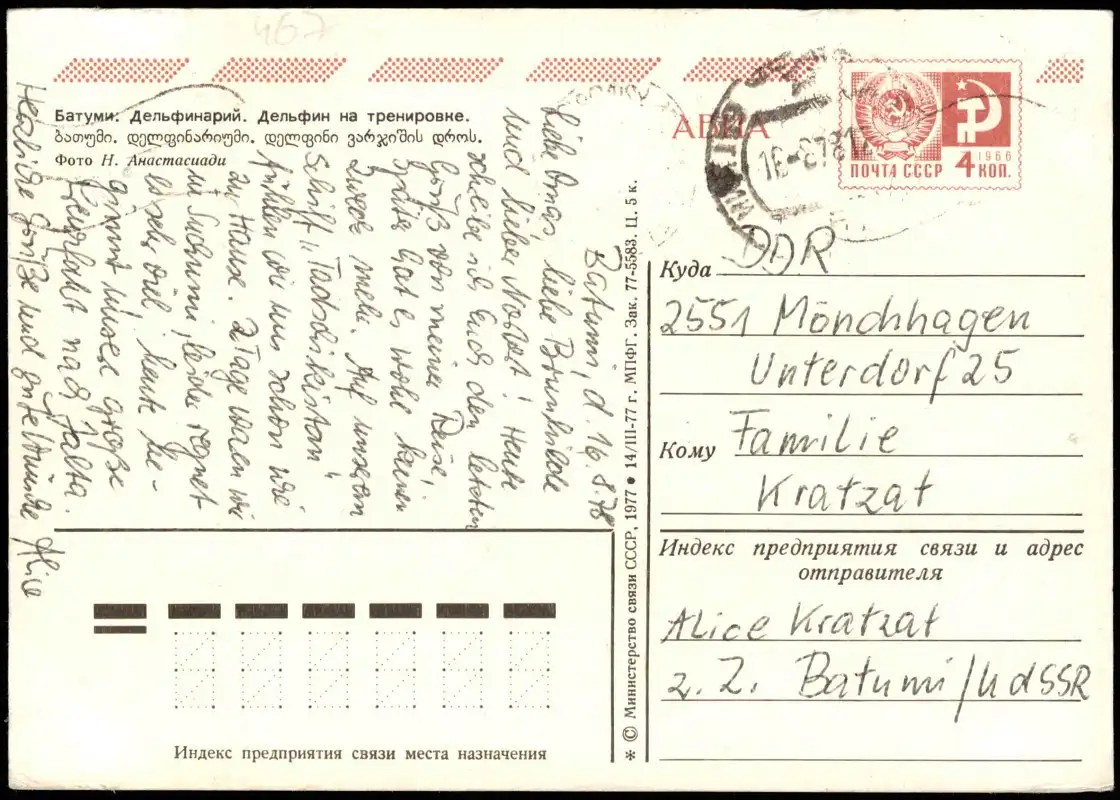 467
Батуми. Дельфинарий. Дельфин на тренировке.
ბათუმი. დელფინარიუმი. დელფინი ვარჯიშის დროს.
Фото Н. Анастасиади
АВИА
ПОЧТА СССР
1966
4 КОП.
Batumi, d. 16.8.78
Liebe Omas, liebe Brunhilde
und lieber Norbert! Heute
schreibe ich Euch den letzten
Gruß von meiner Reise,
Karte habe, wohl keinen
Zweck mehr. Auf unserem
Schiff "Tadschikistan"
fühlen wir uns schon wie
zu Hause. 2 Tage waren wir
in Suchumi, leider regnet
es sehr viel, heute be-
ginnt unsere große
Seefahrt nach Jalta.
Herzliche Grüße und gute Wünsche Alice
* © Министерство связи СССР, 1977 • 14/III-77 г. МПФГ. Зак. 77-5583. Ц. 5 к.
Куда DDR
2551 Mönchhagen
Unterdorf 25
Кому Familie
Kratzat
Индекс предприятия связи и адрес
отправителя
Alice Kratzat
z. Z. Batumi/UdSSR
Индекс предприятия связи места назначения